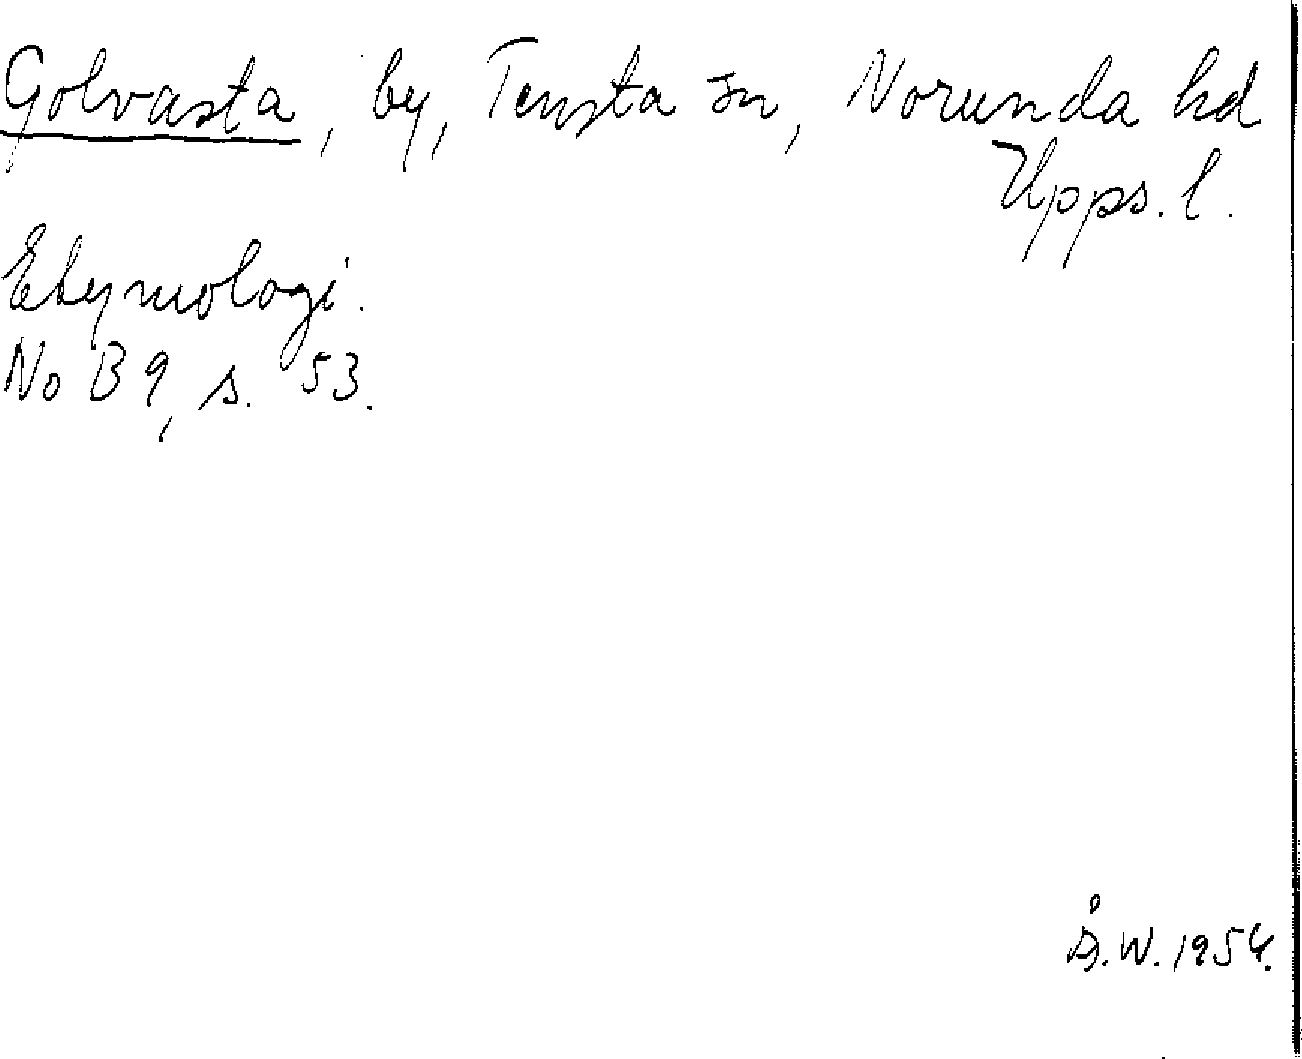 Golvasta, by, Tensta sn, Norunda hd
Upps. l.
Etymologi.
No B 9, s. 53.
Å.W. 1954.